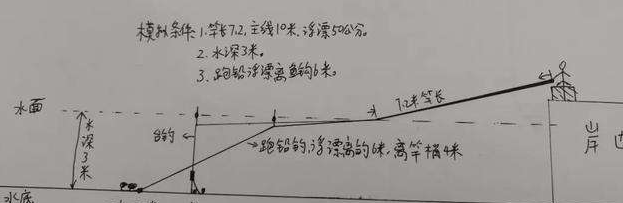 模拟条件 1.竿长7.2,主线10米,浮漂50公分。
2.水深3米。
3.跑铅浮漂离鱼钩6米。
水面
7.2米竿长
水深3米
台钓
跑铅钓,浮漂离钩6米,离竿梢4米
岸边
水底